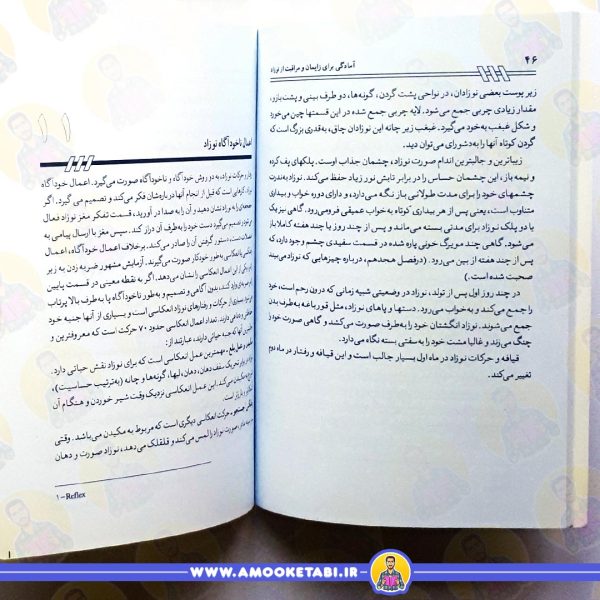 ۴۶
آمادگی برای زایمان و مراقبت از نوزاد
زیر پوست بعضی نوزادان، در نواحی پشت گردن، گونه‌ها، دو طرف بینی و پشت بازو،
مقدار زیادی چربی جمع می‌شود. لایه چربی جمع شده در این قسمتها چین می‌خورد
و شکل غبغب به‌خود می‌گیرد. غبغب زیر چانه این نوزادان چاق، به‌قدری بزرگ است که
گردن کوتاه آنها را به‌دشواری می‌توان دید.
زیباترین و جالبترین اندام صورت نوزاد، چشمان جذاب اوست. پلکهای پف کرده
و نیمه باز، این چشمان حساس را در برابر تابش نور زیاد حفظ می‌کند. نوزاد به‌ندرت
چشمهای خود را برای مدت طولانی باز نگه می‌دارد، و دارای دوره خواب و بیداری
متناوب است، یعنی پس از هر بیداری کوتاه به خواب عمیقی فرو می‌رود. گاهی نیز یک
یا دو پلک نوزاد برای مدتی بسته می‌ماند و پس از چند روز یا چند هفته کاملا باز
می‌شود. گاهی چند مویرگ خونی پاره شده در قسمت سفیدی چشم وجود دارد، که
پس از چند هفته از بین می‌رود. (در فصل هجدهم، درباره چیزهایی که نوزاد می‌بیند
صحبت شده است.)
در چند روز اول پس از تولد، نوزاد در وضعیتی شبیه زمانی که درون رحم است، خود
را جمع می‌کند و به‌خواب می‌رود. دستها و پاهای نوزاد، مثل قورباغه به‌طرف بدن
جمع می‌شوند. نوزاد انگشتان خود را به‌طرف صورت می‌کشد و گاهی صورت خود را
چنگ می‌زند و غالبا مشت خود را به‌سفتی بسته نگاه می‌دارد.
قیافه و حرکات نوزاد در ماه اول بسیار جالب است و این قیافه و رفتار در ماه دوم
تغییر می‌کند.
۱۱
اعمال ناخودآگاه نوزاد
و حرکات نوزاد، به دو روش خودآگاه و ناخودآگاه صورت می‌گیرد. اعمال خودآگاه
کارهایی است که قبل از انجام آنها درباره‌شان فکر می‌کند و تصمیم می‌گیرد. اگر
را به نوزاد نشان دهید و آن را به صدا در آورید، قسمت تفکر مغز نوزاد فعال
و تصمیم می‌گیرد دست خود را به‌طرف آن دراز کند. سپس مغز با ارسال پیامی به
عضلات دست، دستور گرفتن آن را صادر می‌کند. برخلاف اعمال خودآگاه، اعمال
انعکاسی به‌طور خودکار صورت می‌گیرند. آزمایش مشهور ضربه زدن به زیر
یکی از این اعمال انعکاسی را نشان می‌دهد. اگر به نقطه معینی در قسمت پایین
وارد کنند، بدون آگاهی و تصمیم و به‌طور ناخودآگاه پا به‌طرف بالا پرتاب
می‌شود. بسیاری از حرکات و رفتارهای نوزاد انعکاسی است و بسیاری از آنها جنبه
دارند. تعداد اعمال انعکاسی حدود ۷۰ حرکت است که معروفترین و
آنها که جنبه حیاتی دارند، عبارتند از:
مهمترین عمل انعکاسی است که برای نوزاد نقش حیاتی دارد.
تحریک سقف دهان، دهان، لبها، گونه‌ها و چانه (به‌ترتیب حساسیت)،
شروع به‌مکیدن می‌کند. این عمل انعکاسی نزدیک وقت شیر خوردن و هنگام آن
بارزتر است.
حرکت انعکاسی دیگری است که مربوط به مکیدن می‌باشد. وقتی
صورت نوزاد را لمس می‌کند و قلقلک می‌دهد، نوزاد صورت و دهان
۱– Reflex
WWW.AMOOKETABI.IR